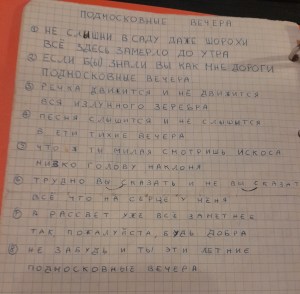 ПОДНОСКОВНЫЕ ВЕЧЕРА
① НЕ СЛЫШНИ В САДУ ДАЖЕ ШОРОХИ
ВСЁ ЗДЕСЬ ЗАМЕРЛО ДО УТРА
② ЕСЛИ Б(Ы) ЗНАЛИ ВЫ КАК МНЕ ДОРОГИ
ПОДНОСКОВНЫЕ ВЕЧЕРА
③ РЕЧКА ДВИЖИТСЯ И НЕ ДВИЖИТСЯ
ВСЯ ИЗ ЛУННОГО ЗЕРЕБРА
④ ПЕСНЯ СЛЫШИТСЯ И НЕ СЛЫШИТСЯ
В ЕТИ ТИХИЕ ВЕЧЕРА
⑤ ЧТО Ж ТЫ МИЛАЯ СМОТРИШЬ ИСКОСА
НИЗКО ГОЛОВУ НАКЛОНЯ
⑥ ТРУДНО ВЫСКАЗАТЬ И НЕ ВЫСКАЗАТ
ВСЁ ЧТО НА СЕРЦЕ У МЕНЯ
⑦ А РАССВЕТ УЖЕ ВСЁ ЗАМЕТНЕЕ
ТАК ПОЖАЛУЙСТА, БУДЬ ДОБРА
⑧ НЕ ЗАБУДЬ И ТЫ ЭТИ ЛЕТНИЕ
ПОДНОСКОВНЫЕ ВЕЧЕРА